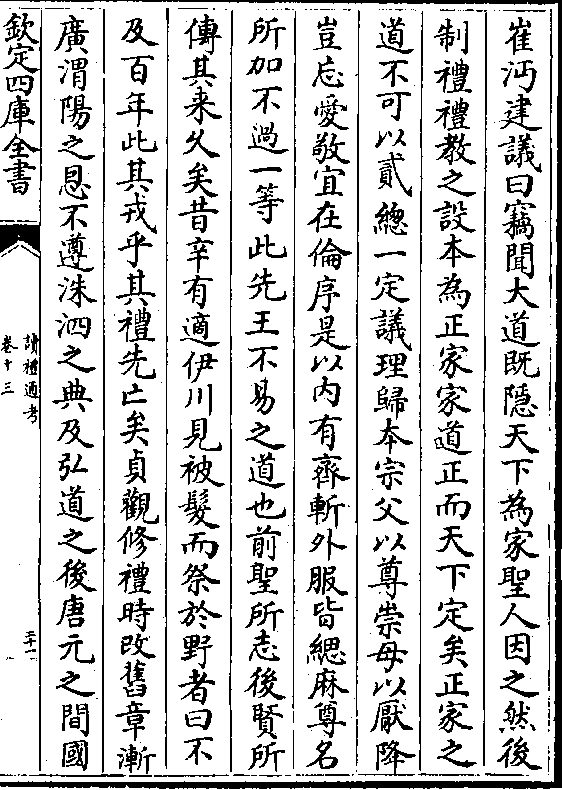 崔沔建議曰竊聞大道既隱天下為家聖人因之然後
制禮禮教之設本為正家家道正而天下定矣正家之
道不可以貳總一定議理歸本宗父以尊崇母以厭降
豈忘愛敬宜在倫序是以内有齊斬外服皆緦麻尊名
所加不過一等此先王不易之道也前聖所志後賢所
傳其来久矣昔辛有適伊川見被髮而祭於野者曰不
及百年此其戎乎其禮先亡矣貞觀修禮時改舊章漸
廣渭陽之恩不遵洙泗之典及弘道之後唐元之間國
欽定四庫全書
讀禮通考
卷十三